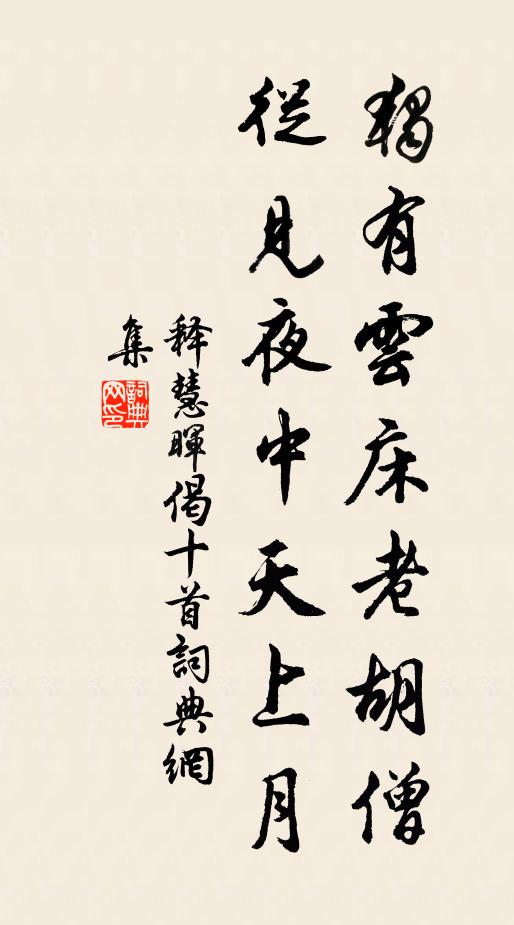 獨有雲床老胡僧
從見夜中天上月
释慧暉偈十首詞典網
集
詞典
网印